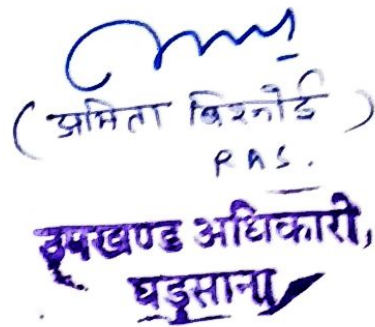 (अमिता बिश्नोई)
RAS.
उपखण्ड अधिकारी,
घड़साना